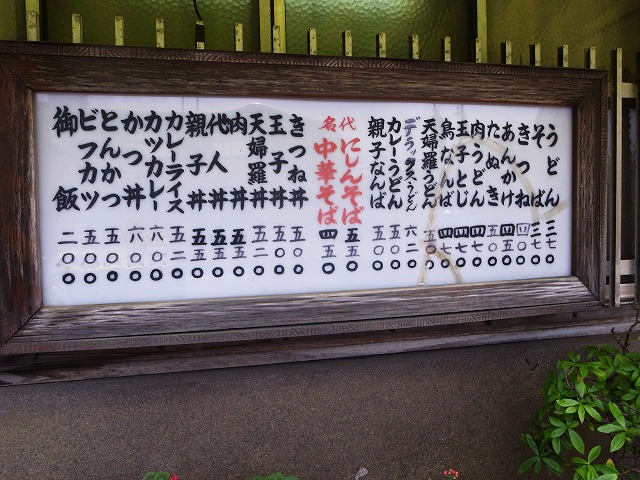 うどん 三七〇
そば 三七〇
きつね
あんかけ 四五〇
たぬき 五〇〇
肉うどん 四七〇
玉子とじ 四七〇
鳥なんば 四七〇
天婦羅うどん
デラックスうどん 六二〇
カレーうどん 五〇〇
親子なんば 五〇〇
名代
にしんそば 五五〇
中華そば 四五〇
きつね丼 五〇〇
玉子丼 五〇〇
天婦羅丼 五二〇
肉丼 五五〇
代人丼 五五〇
親子丼 五五〇
カレーライス 五二〇
カツカレー 六〇〇
かつ丼 六〇〇
とんかつ 五〇〇
ビフカツ 五〇〇
御飯 二〇〇